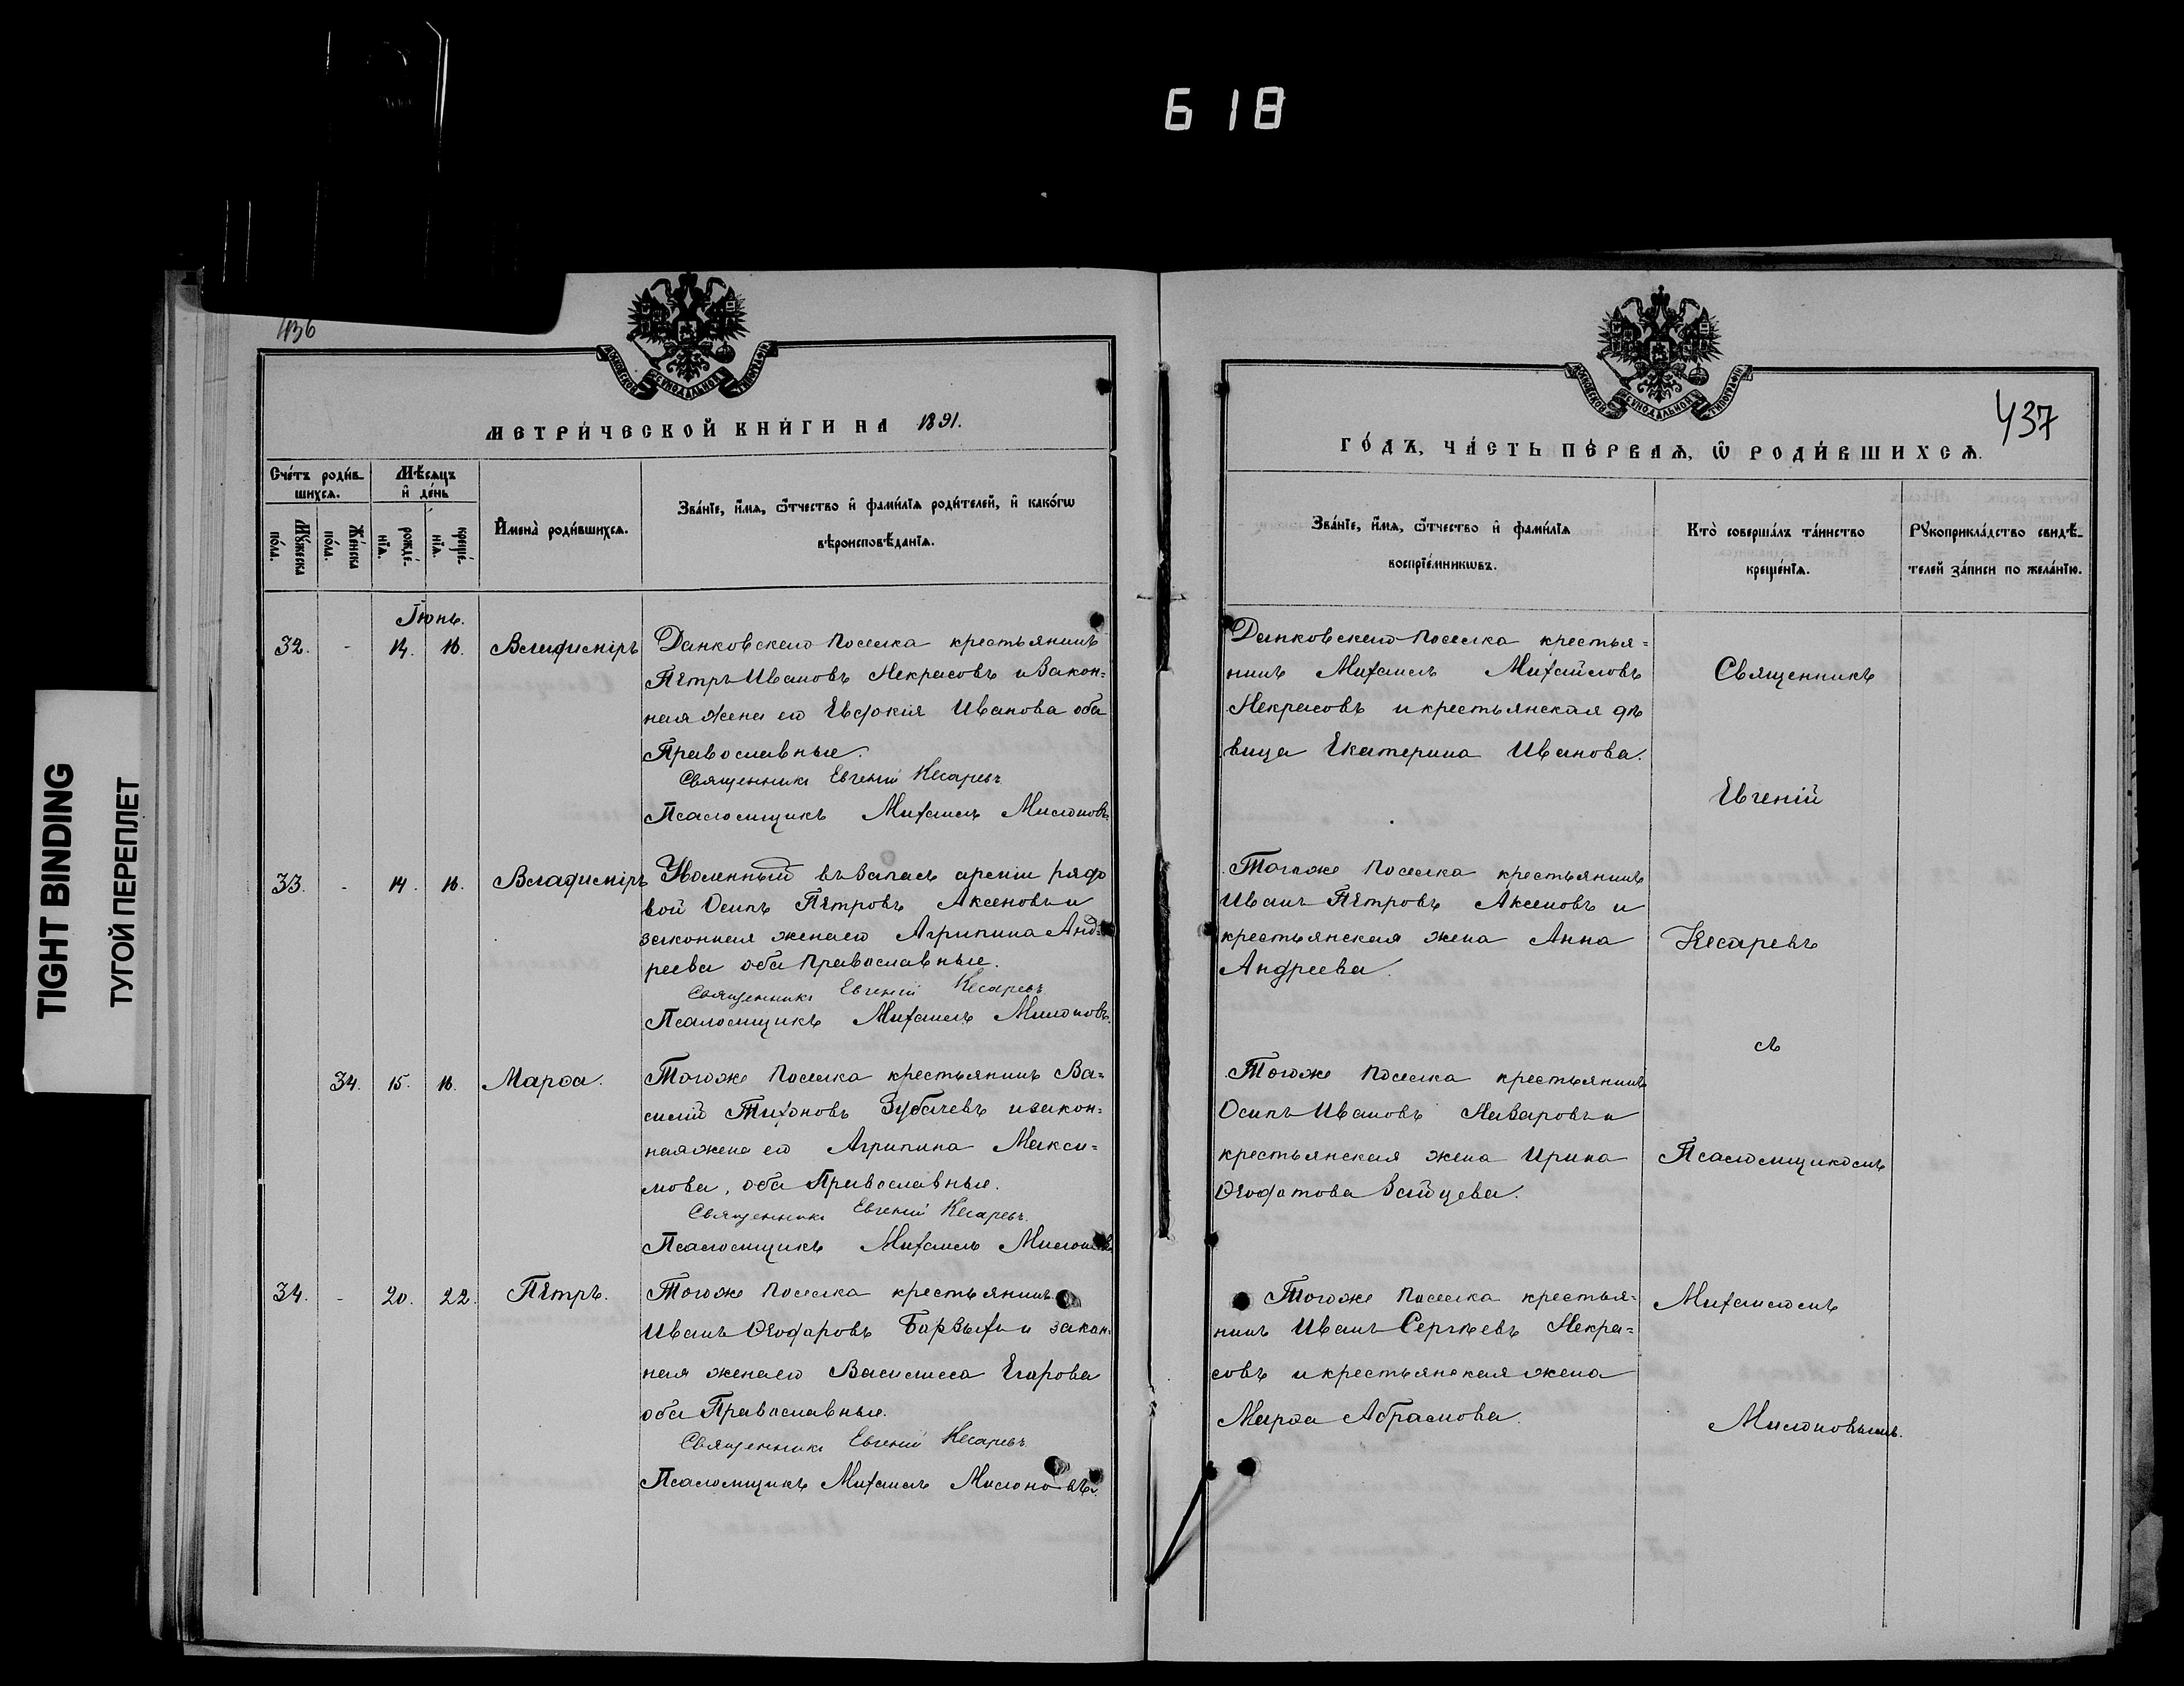 618
TIGHT BINDING
ТУГОЙ ПЕРЕПЛЕТ
436
МОСКОВСКОЙ СУНОДАЛЬНОЙ ТИПОГРАФІИ
МЕТРИ́ЧЕСКОЙ КНИ́ГИ НА 1891.
Сче́тъ роди́в-
шихсѧ.
Мѣ́сѧцъ
и҆ де́нь
И҆мена̀ роди́вшихсѧ.
Зва́нїе, и҆́мѧ, ѻ҆́тчество и҆ фами́лїѧ роди́телей, и҆ како́гѡ
вѣроисповѣ́данїѧ.
Мꙋ́жеска
по́ла.
Же́нска
по́ла.
рожде́-
нїѧ.
креще́-
нїѧ.
Іюнь.
32. - 14. 16. Владиміръ Данковскаго поселка крестьянинъ
Пётръ Ивановъ Некрасовъ и закон=
ная жена его Евдокія Иванова оба
Православные.
Священникъ Евгеній Кесаревъ
Псаломщикъ Михаилъ Милоновъ
33. - 14. 16. Владиміръ Уволенный въ запасъ арміи рядо
вой Осипъ Пётровъ Аксеновъ и
законная жена его Агрипина Анд-
реева оба православные.
Священникъ Евгеній Кесаревъ
Псаломщикъ Михаилъ Милоновъ.
34. 15. 16. Марѳа. Тогоже поселка крестьянинъ Ва=
силій Тихоновъ Зубачевъ и закон=
ная жена его Агрипина Макси=
мова, оба Православные.
Священникъ Евгеній Кесаревъ.
Псаломщикъ Михаилъ Милоновъ
34. - 20. 22. Пётръ. Тогоже поселка крестьянинъ
Иванъ Ѳеодоровъ и закон=
ная жена его Василисса Егорова
оба Православные.
Священникъ Евгеній Кесаревъ
Псаломщикъ Михаилъ Милоновъ.
МОСКОВСКОЙ СУНОДАЛЬНОЙ ТИПОГРАФІИ
437
ГО́ДЪ, ЧА́СТЬ ПЕ́РВАѦ, Ѡ҆ РОДИ́ВШИХСѦ.
Зва́нїе, и҆́мѧ, ѻ҆́тчество и҆ фами́лїѧ
воспрїе́мникѡвъ.
Кто̀ соверша́лъ та́инство
креще́нїѧ.
Рꙋкоприкла́дство свидѣ́-
телей за́писи по жела́нїю.
Данковскаго поселка крестья=
нинъ Михаилъ Михайловъ
Некрасовъ и крестьянская дѣ
вица Екатерина Иванова.
Тогоже поселка крестьянинъ
Иванъ Пётровъ Аксеновъ и
крестьянская жена Анна
Андреева.
Тогоже поселка крестьянинъ
Осипъ Ивановъ Назаровъ и
крестьянская жена Ирина
Ѳеодотова Зайцева.
Тогоже поселка крестья=
нинъ Иванъ Сергѣевъ Некра=
совъ и крестьянская жена
Марѳа Абрамова.
Священникъ
Евгеній
Кесаревъ
съ
Псаломщикомъ
Михаиломъ
Милоновымъ.